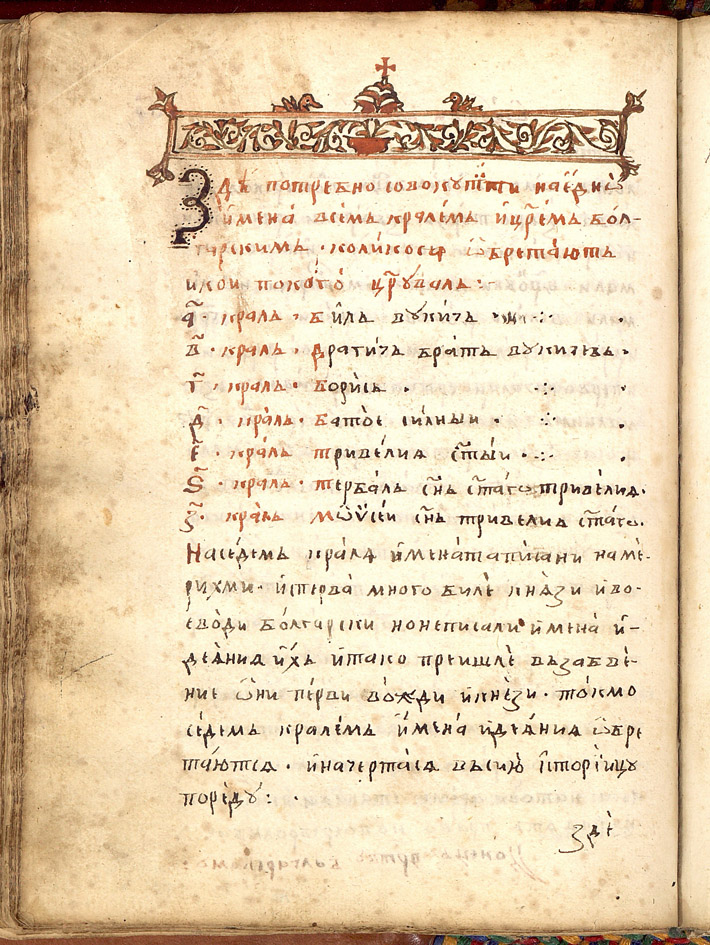 Здѣ потребно совокупити наедно
имена всемъ кралемъ и цр҃емъ бол-
гарскимъ · колико сѧ ѡбретаютъ
и кои по кого цр҃увалъ :
а҃ · кралъ · Билъ вукичъ · ·:· ·
в҃ · кралъ · Драгичъ братъ вукичевъ ·
г҃ · кралъ · Борисъ · ·:· ·
д҃ · кралъ · Батое силныи · ·:· ·
е҃ · кралъ тривелиа ст҃ыи · ·:· ·
ѕ҃ · кралъ · тербалъ сн҃ъ ст҃агѡ тривелиа ·
з҃ · кралъ мѡѷсеи сн҃ъ тривелиа ст҃агѡ ·
На седемъ кралѧ имената писани наме-
рихми · и сперва много биле кнѧзи и во-
еводи болгарски но не писали имена и-
деѧниѧ ихъ и тако преишле въ забве-
ние ѡни перви вожди и кнези · токмо
седемъ кралемъ имена и деѧниѧ ѡбре
таютсѧ · и начертасѧ въ сию їсториицу
пореду : ·
зде